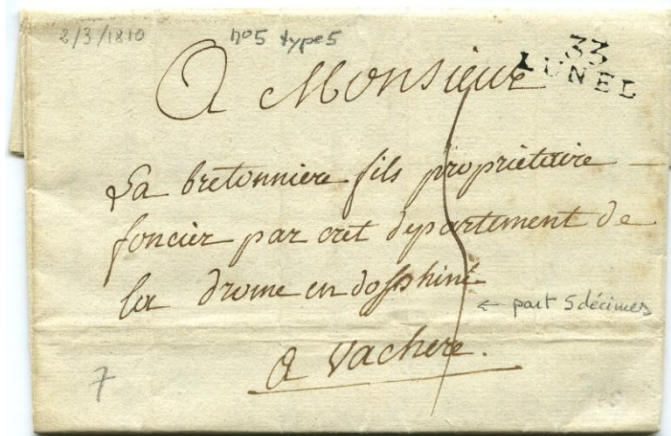 2/3/1810
n°5 type 5
33
LUNEL
A Monsieur
La bretonniere fils proprietaire
foncier par cret departement de
la drome en dosphiné
← port 5 décimes
a vachere.
7